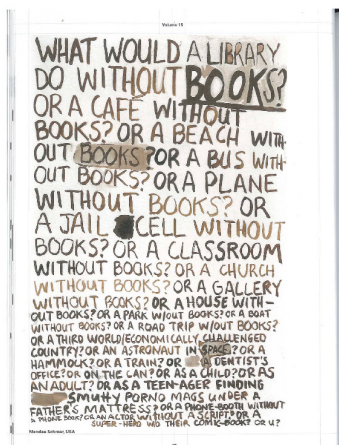 Volume 15
WHAT WOULD A LIBRARY
DO WITHOUT BOOKS?
OR A CAFÉ WITHOUT
BOOKS? OR A BEACH WITH-
OUT BOOKS? OR A BUS WITH-
OUT BOOKS? OR A PLANE
WITHOUT BOOKS? OR
A JAIL CELL WITHOUT
BOOKS? OR A CLASSROOM
WITHOUT BOOKS? OR A CHURCH
WITHOUT BOOKS? OR A GALLERY
WITHOUT BOOKS? OR A HOUSE WITH-
OUT BOOKS? OR A PARK W/OUT BOOKS? OR A BOAT
WITHOUT BOOKS? OR A ROAD TRIP W/OUT BOOKS?
OR A THIRD WORLD/ECONOMICALLY CHALLENGED
COUNTRY? OR AN ASTRONAUT IN SPACE? OR A
HAMMOCK? OR A TRAIN? OR A DENTIST'S
OFFICE? OR ON THE CAN? OR AS A CHILD? OR AS
AN ADULT? OR AS A TEEN-AGER FINDING
SMUTTY PORNO MAGS UNDER A
FATHER'S MATTRESS? OR A PHONE-BOOTH WITHOUT
A PHONE BOOK? OR AN ACTOR WITHOUT A SCRIPT? OR A
SUPER-HERO W/O THEIR COMIC-BOOK? OR U?
USA